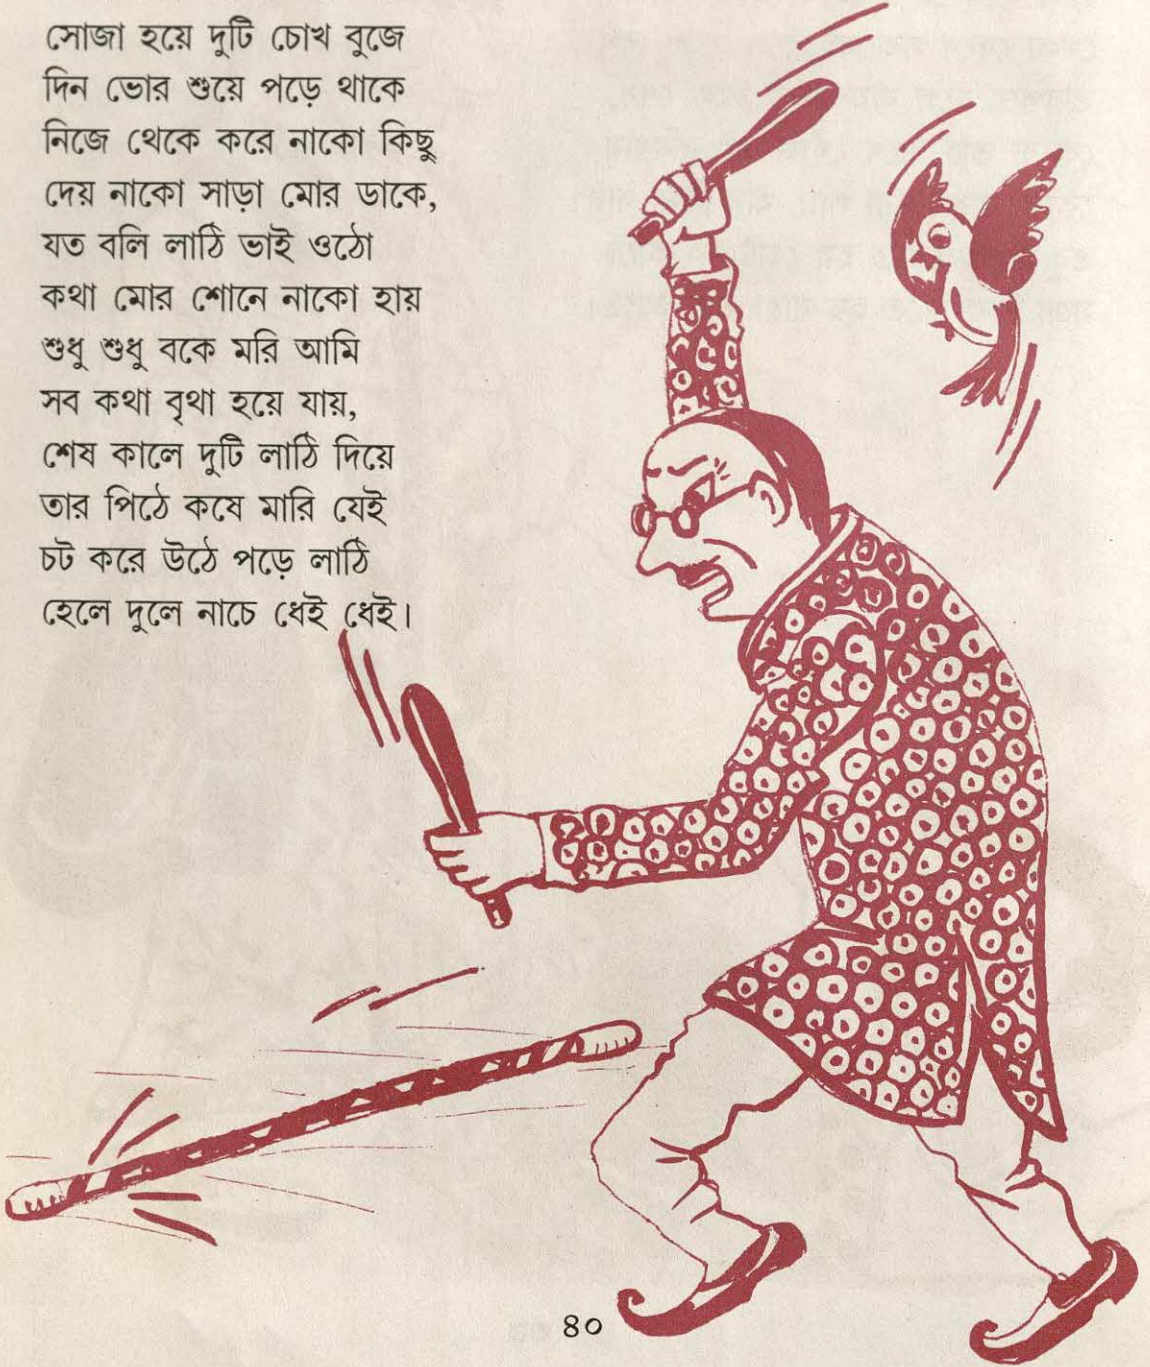 সোজা হয়ে দুটি চোখ বুজে
দিন ভোর শুয়ে পড়ে থাকে
নিজে থেকে করে নাকো কিছু
দেয় নাকো সাড়া মোর ডাকে,
যত বলি লাঠি ভাই ওঠো
কথা মোর শোনে নাকো হায়
শুধু শুধু বকে মরি আমি
সব কথা বৃথা হয়ে যায়,
শেষ কালে দুটি লাঠি দিয়ে
তার পিঠে কষে মারি যেই
চট করে উঠে পড়ে লাঠি
হেলে দুলে নাচে ধেই ধেই।
৪০